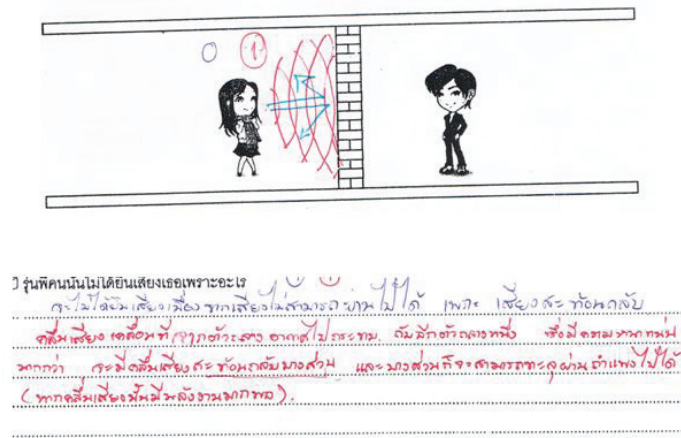 0 1
ปี รุ่นพี่คนนั้นไม่ได้ยินเสียงเธอเพราะอะไร
จะไม่ได้ยินเสียงเนื่องจากเสียงไม่สามารถผ่านไปได้ เพราะ เสียงสะท้อนกลับ
คลื่นเสียง เคลื่อนที่จากตัวกลาง อากาศไปกระทบ กับอีกตัวกลางหนึ่ง ซึ่งมีความหนาแน่น
มากกว่า จะมีคลื่นเสียงสะท้อนกลับบางส่วน และบางส่วนก็จะสามารถทะลุผ่านกำแพงไปได้
(หากคลื่นเสียงนั้นมีพลังงานมากพอ).